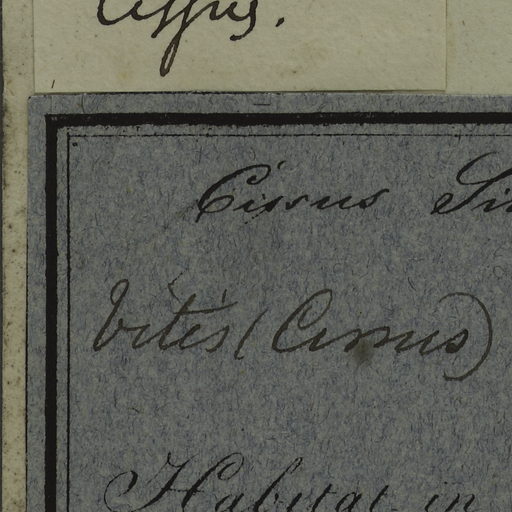 Cissus.
Cissus
Vitis (Cissus)
Habitat in